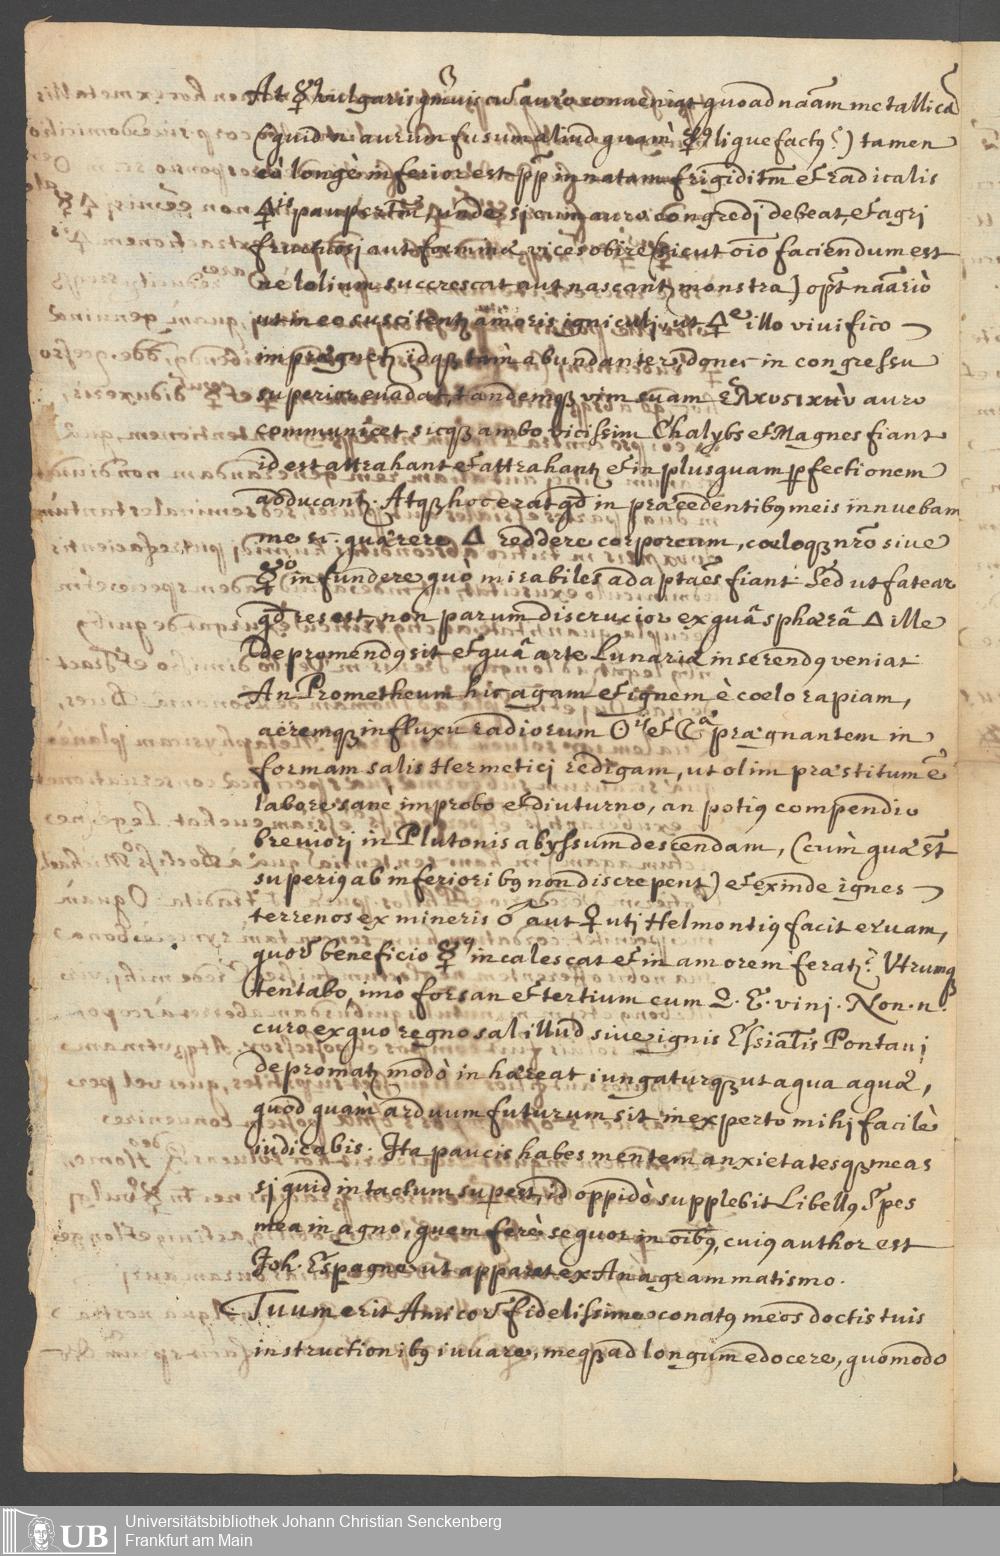 At ☿9 vulgaris qmvis cu auro conveniat quoad naam metallicā
(quid n aurum fusum aliud quam ☿9 liquefactꝰ?) tamen
eò longè inferior est ꝓp innatam frigiditm et radicalis
🜍is paupertm, unde si cum auro congredj debeat, et agri
fructuosj aut foeminae vices obire (sicut oīo faciendum est
nè lolium succrescat aut nascantꝛ monstra) opt naariò
ut in eo suscitentꝛ amoris igniculj, ut 🜍e illo vivifico
impraegnetꝛ idqꝫ tam abundanter, donec in congressu
superior evadat, tandemqꝫ vim suam ἑλκυστικὴν auro
communicet sicqꝫ ambo vicissim Chalybs et Magnes fiant
id est attrahant et attrahantꝛ et in plusquam ꝑfectionem
adducantꝛ. Atqꝫ hoc erat qd in praecedentibꝰ meis innuebam
me sc. quaerere 🜂 reddere corporeum, coeloqꝫ nro sive
☿o infundere quò mirabiles adaptaēs fiant. Sed ut fatear
qd res est, non parum discrucior ex quâ sphaerâ 🜂 ille
depromendꝰ sit et quâ arte Lunariae inserendꝰ veniat.
An Prometheum hic agam et ignem è coelo rapiam,
aëremqꝫ influxu radiorum ☉is et ☾a praegnantem in
formam salis Hermeticj redigam, ut olim praestitum ē
labore sanè improbo et diuturno, an potiꝰ compendio
breviorj in Plutonis abyssum descendam, (cùm quae st
superiꝰ ab inferioribꝰ non discrepent) et exinde ignes
terrenos ex mineris ♂ aut ♀ utj Helmontiꝰ facit eruam,
quor beneficio ☿9 incalescat et in amorem feratꝛ? Utrumqꝫ
tentabo, imò forsan et tertium cum Q. E. vinj. Non n.
curo ex quo regno sal illud sive ignis Essialis Pontani
depromatꝛ modò inhaereat iungaturqꝫ ut aqua aquae,
quod quàm arduum futurum sit inexperto mihj facilè
iudicabis. Ita paucis habes mentem anxietatesqꝫ meas
sj quid intactum superest, id oppidò supplebit Libellꝰ Spes
mea in agno, quem ferè sequor in oībꝰ, cuiꝰ author est
Joh. Espagne ut apparet ex Anagrammatismo.
Tuum erit Amicor fidelissime conatꝰ meos doctis tuis
instructionibꝰ iuvare, meqꝫ ad longum edocere, quomodo
UB Universitätsbibliothek Johann Christian Senckenberg
Frankfurt am Main